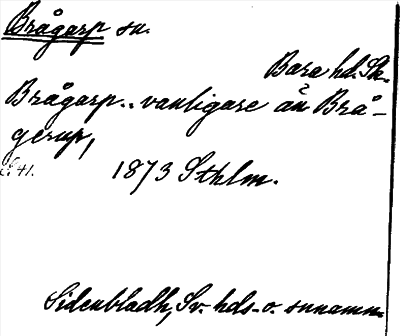 Brågarp sn.
Bara hd. Sk.
Brågarp.. vanligare än Brå-
gerup,
S. 41.
1873 Sthlm.
Sidenbladh, Sv. hds- o. snnamn.